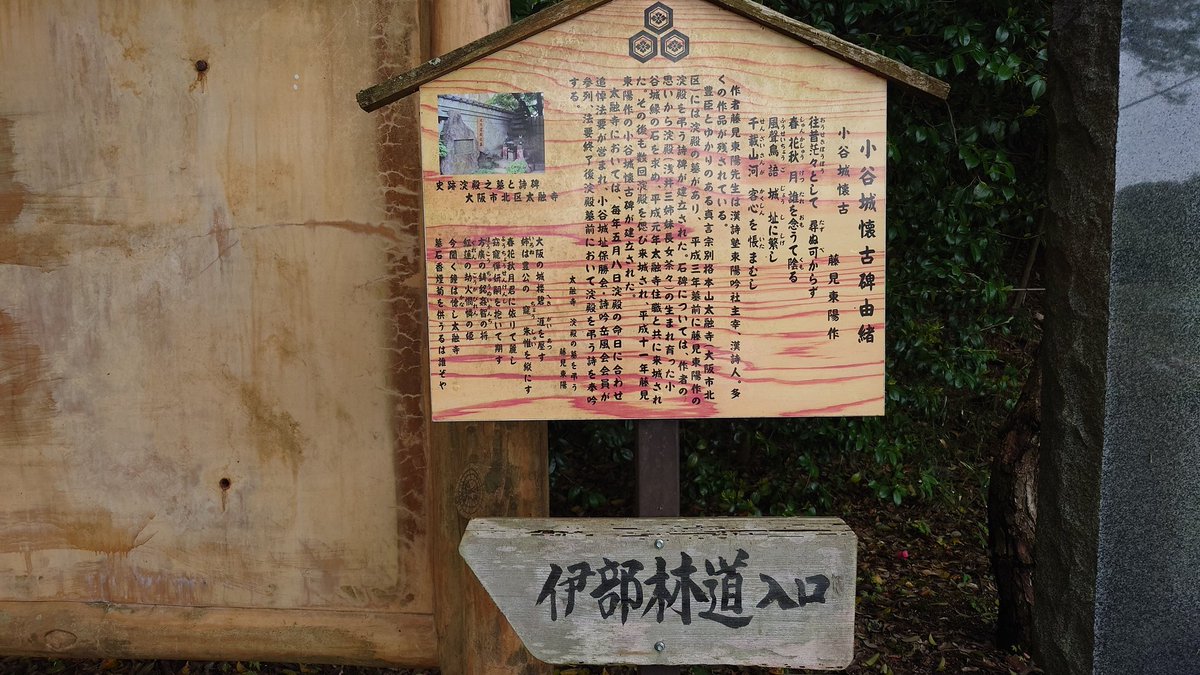 小谷城懐古碑由緒
小谷城懐古
藤見東陽作
往昔茫々として 尋ぬ可からず
春花秋月 誰を念うて陰る
風聲鳥語 城址に繁し
千載山河 客心を悵ましむ
作者藤見東陽先生は漢詩塾東陽吟社主宰、漢詩人。多
くの作品が残されている。
豊臣とゆかりのある真言宗別格本山太融寺(大阪市北
区)には淀殿の墓があり、平成三年墓前に藤見東陽作の
淀殿を弔う詩碑が建立された。石碑については、作者の
思いから淀殿(浅井三姉妹長女茶々)の生まれ育った小
谷城縁の石を求め、平成元年太融寺住職と共に来城され
た。その後も数回淀殿を偲び来城され、平成十一年藤見
東陽作の小谷城懐古碑が建立された。
太融寺においては、毎年五月八日淀殿の命日に合わせ
追悼法要が営まれ、小谷城址保勝会、詩吟岳風会会員が
参列、法要終了後淀殿墓前において淀殿を弔う詩を奉吟
する。
史跡淀殿之墓と詩碑
大阪市北区太融寺
太融寺 淀殿の墓を弔う
藤見東陽
大阪の城楼 漚を屋す
姉は豊公の寵 朱帷を綏にす
春花秋月君に依りて麗し
窈窕倖嗣を抱いて翔す
方廣の鋳銘姦智の将
紅蓮の劫火憫憐の姫
今聞く鐘は悽し太融寺
墓石香煙菊を供うるは誰ぞや
伊部林道入口